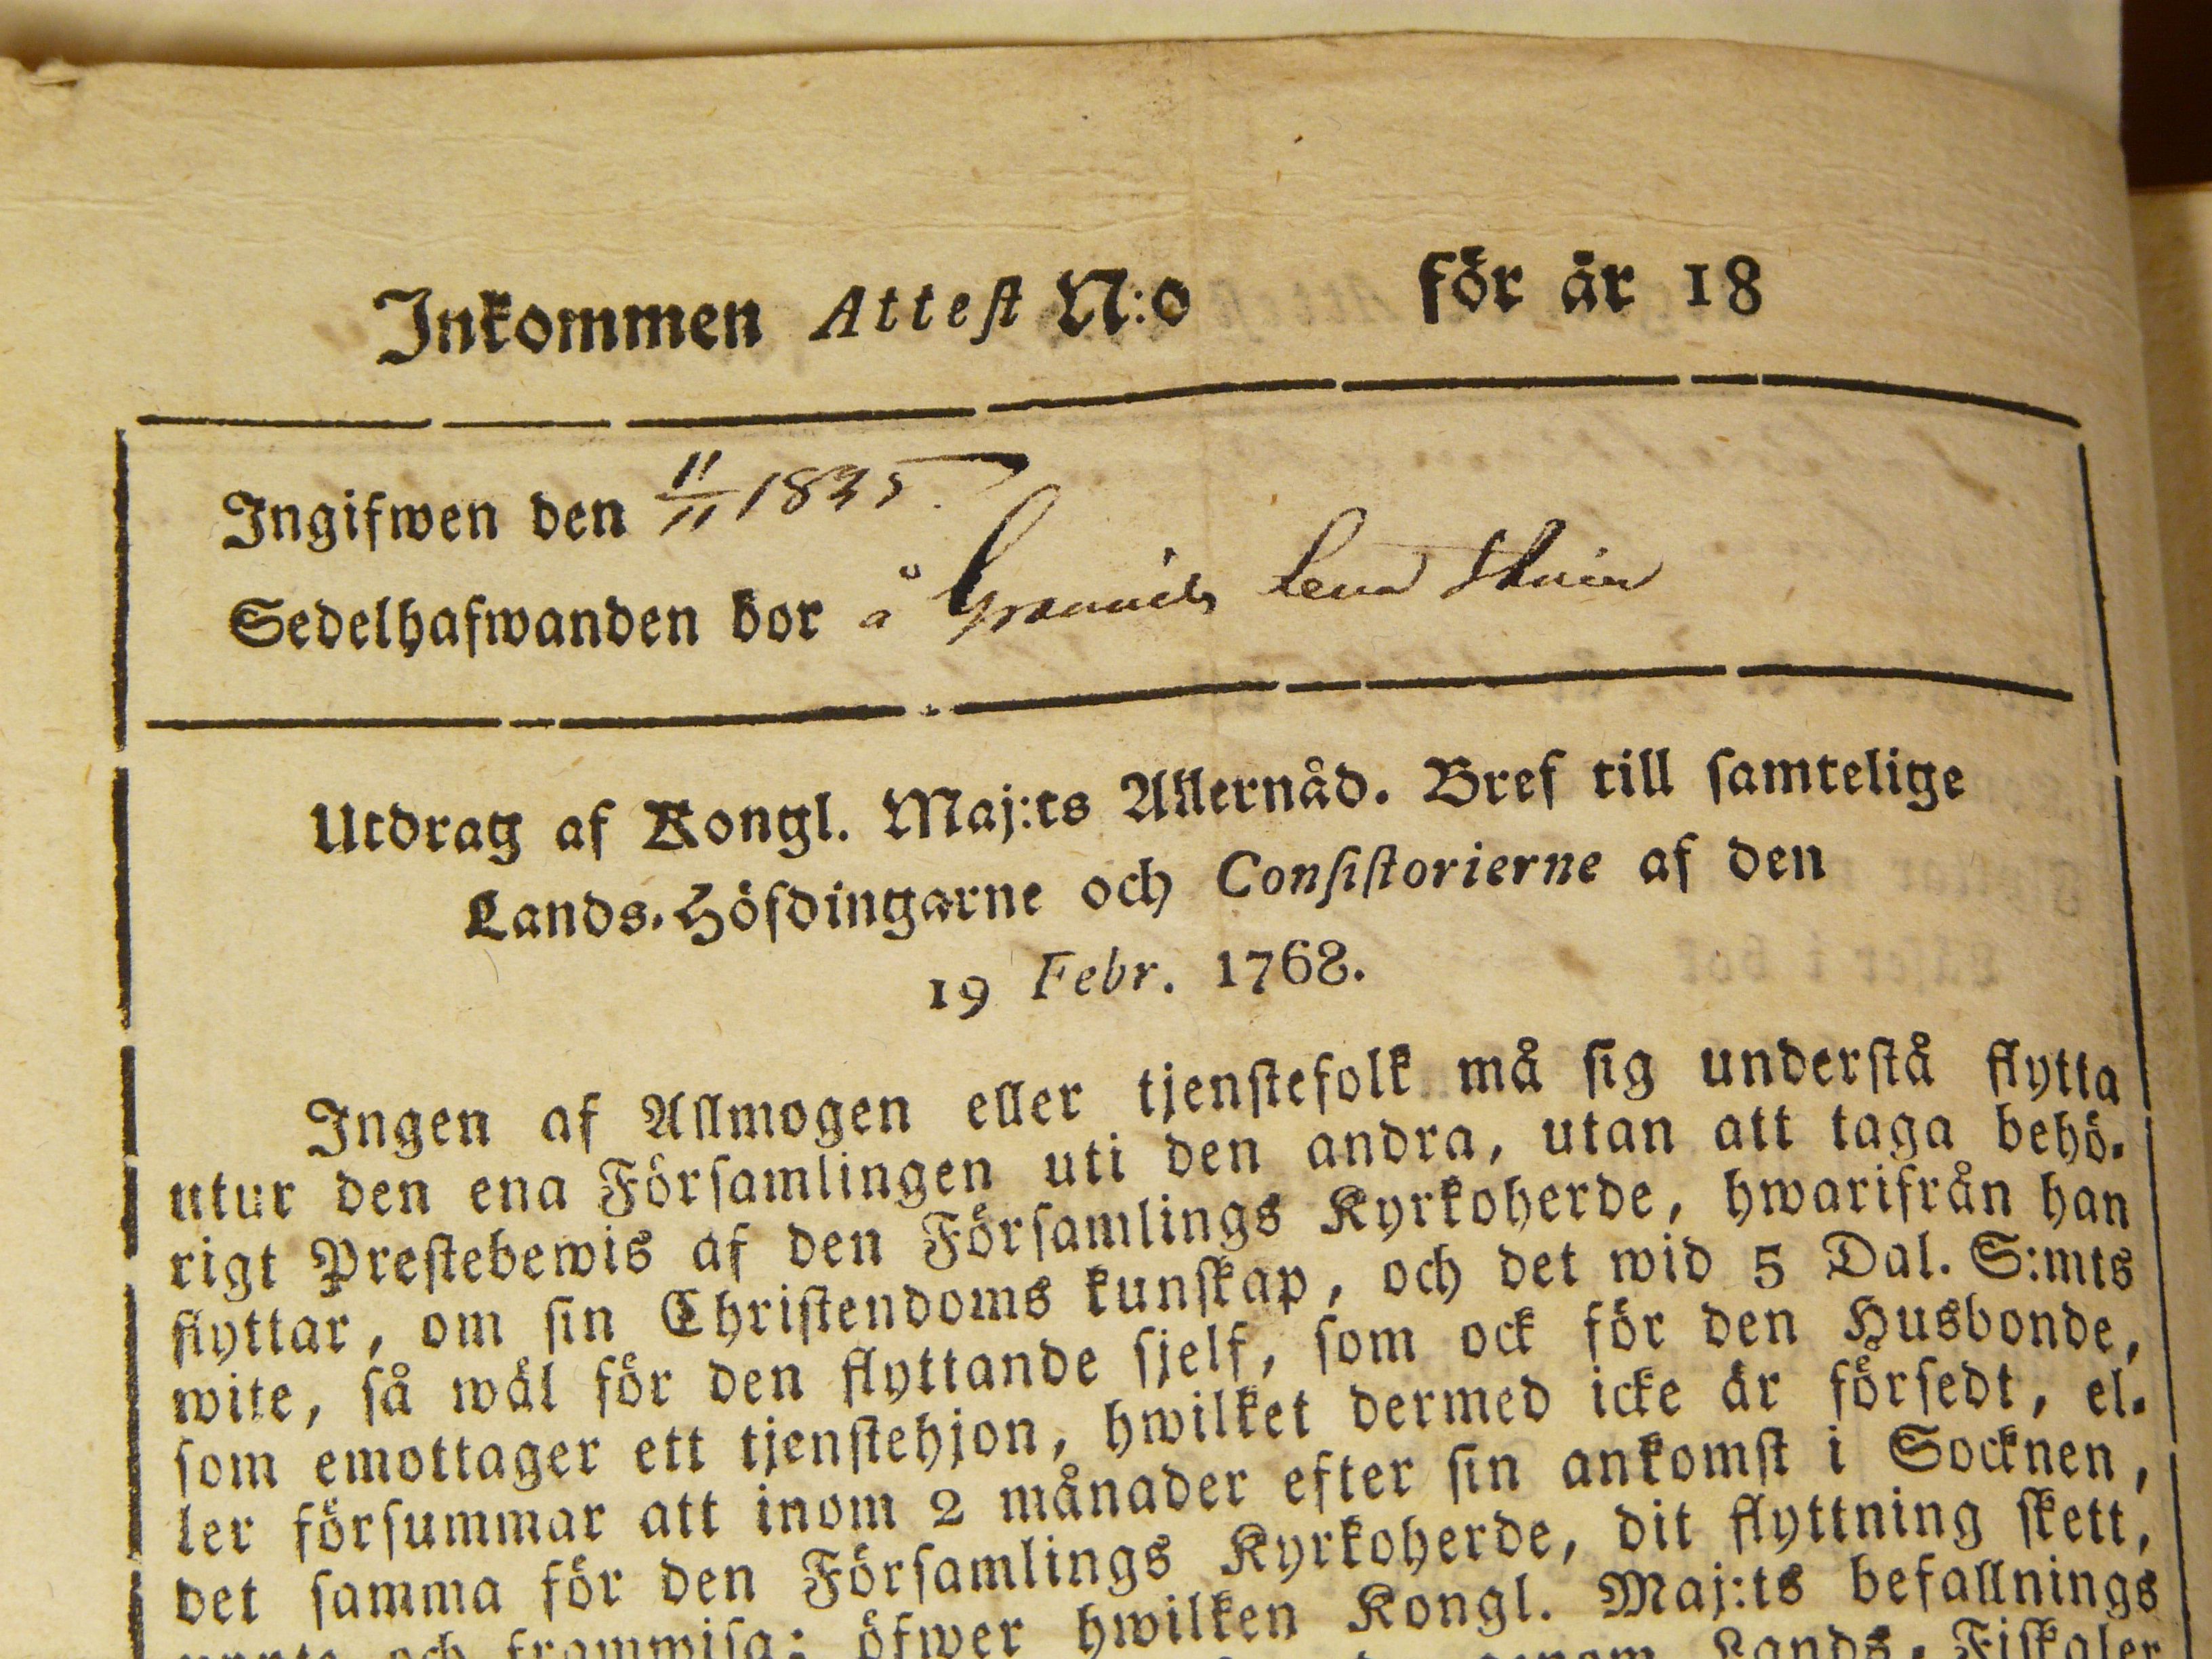 Inkommen Atteſt N:o för år 18
Ingifwen den 11/11 1835.
Sedelhafwanden bor å
Utdrag af Kongl. Maj:ts Allernåd. Bref till ſamtelige
Lands-Höfdingarne och Conſiſtorierne af den
19 Febr. 1768.
Ingen af Allmogen eller tjenſtefolk må ſig underſtå flytta
utur den ena Förſamlingen uti den andra, utan att taga behö-
rigt Preſtebewis af den Förſamlings Kyrkoherde, hwarifrån han
flyttar, om ſin Chriſtendoms kunſkap, och det wid 5 Dal. S:mts
wite, ſå wäl för den flyttande ſjelf, ſom ock för den Husbonde,
ſom emottager ett tjenſtehjon, hwilket dermed icke är förſedt, el-
ler förſummar att inom 2 månader efter ſin ankomſt i Socknen,
det ſamma för den Förſamlings Kyrkoherde, dit flyttning ſkett,
och framwiſa; öfwer hwilken Kongl. Maj:ts befallnings
genom Lands-Fiſkaler